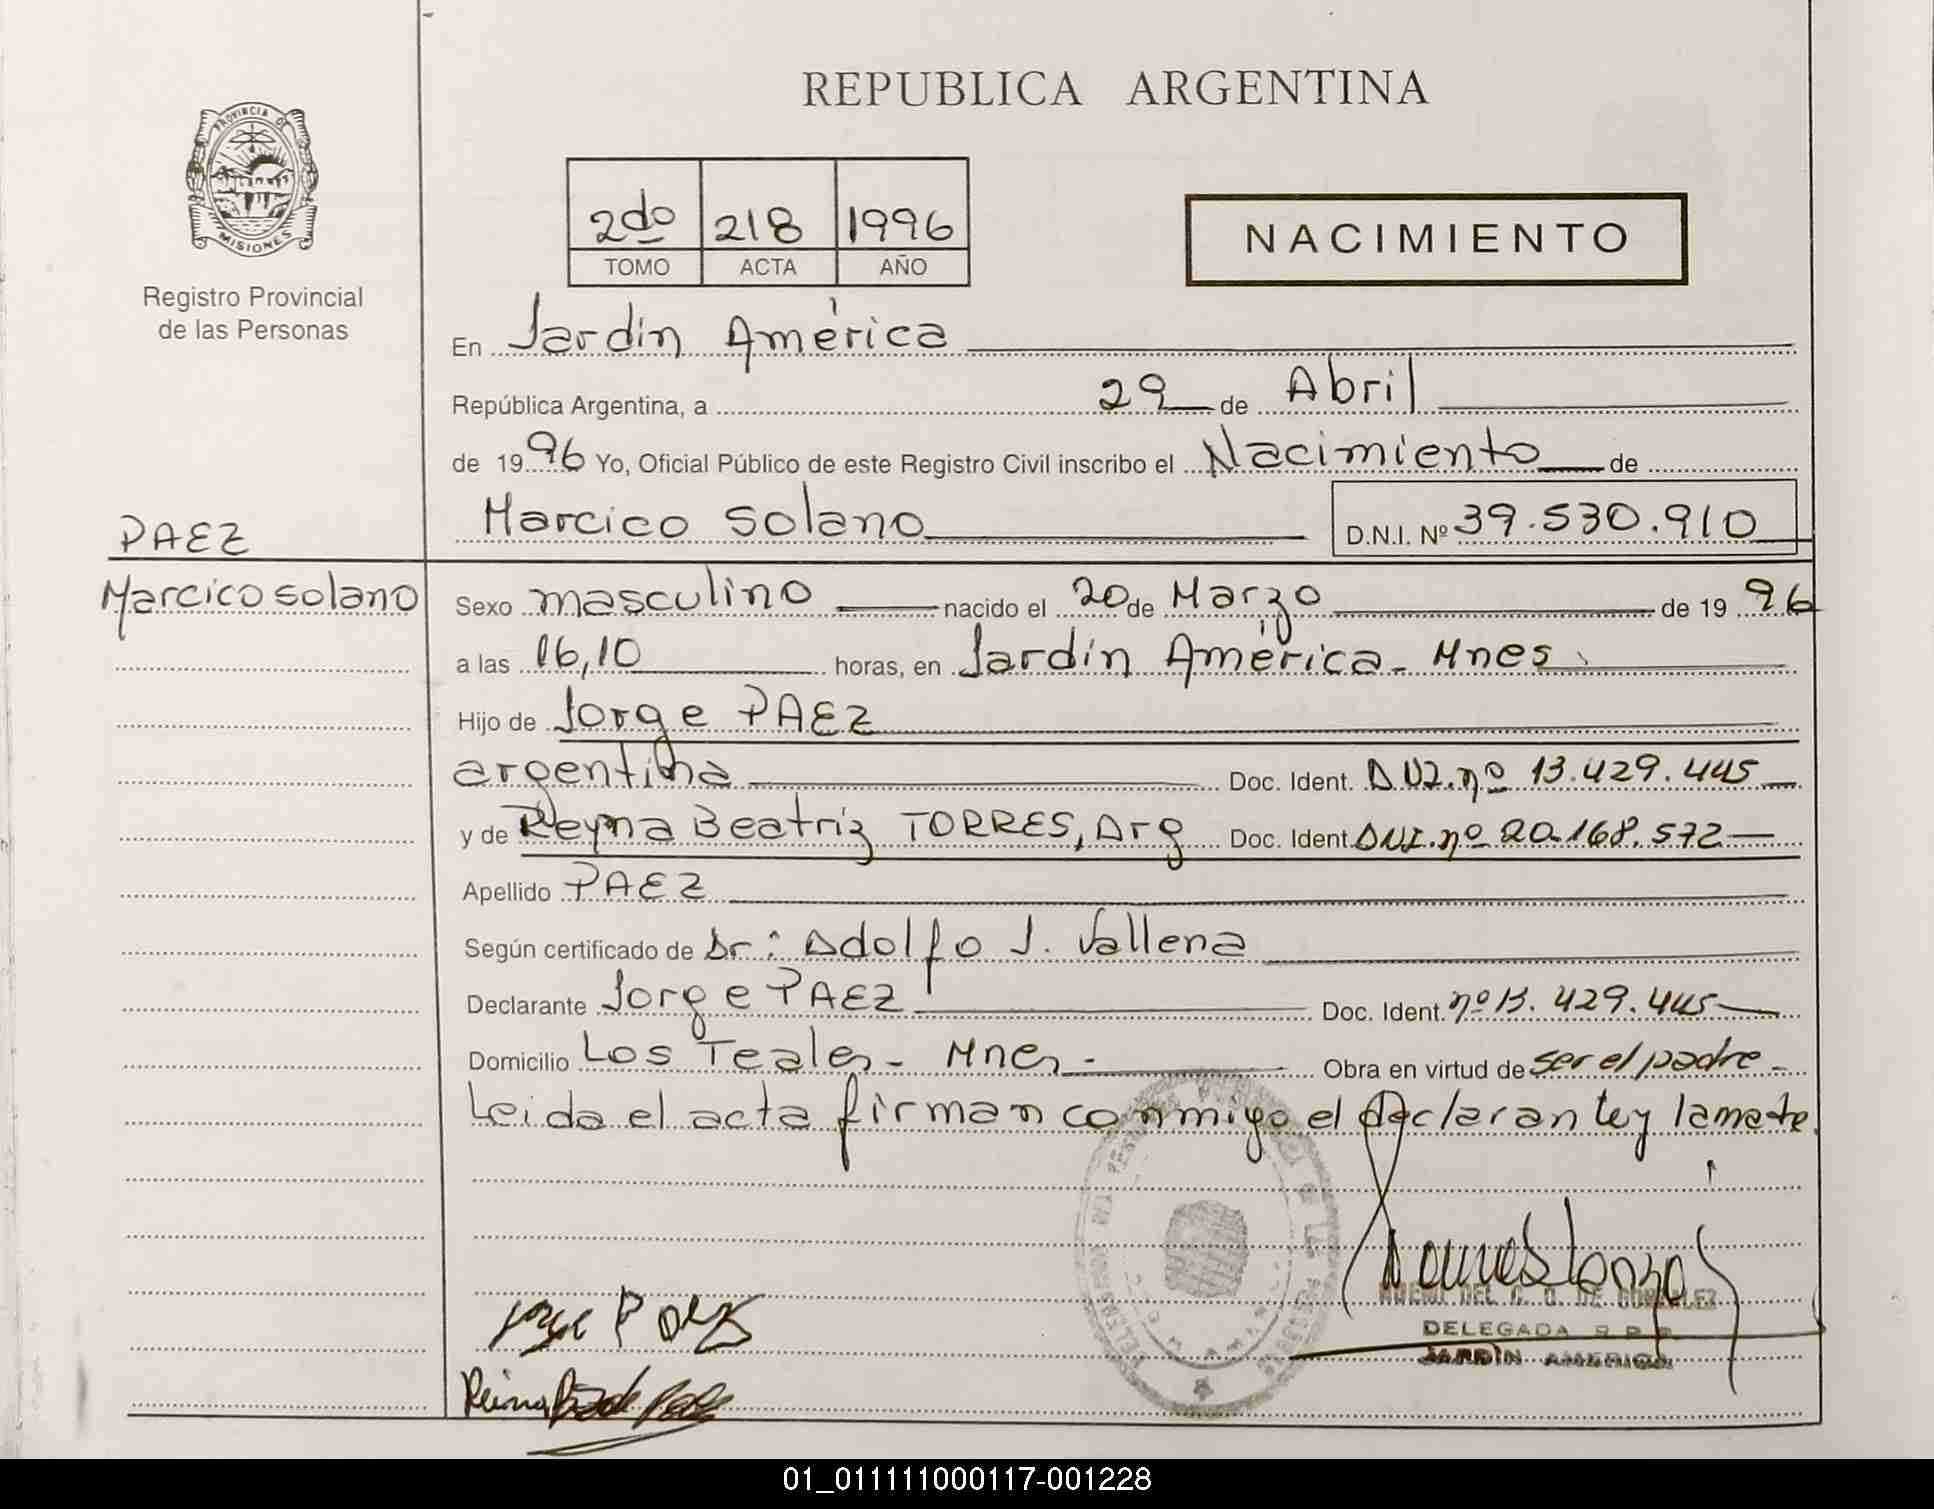 REPUBLICA ARGENTINA
PROVINCIA DE
MISIONES
Registro Provincial
de las Personas
2do 218 1996
TOMO ACTA AÑO
NACIMIENTO
En Jardín América
República Argentina, a 29 de Abril
de 1996 Yo, Oficial Público de este Registro Civil inscribo el Nacimiento de
Marcico Solano D.N.I. Nº 39.530.910
PAEZ
Marcico Solano
Sexo masculino nacido el 20 de Marzo de 1996
a las 16,10 horas, en Jardín América - Mnes
Hijo de Jorge PAEZ
argentina Doc. Ident. DNI. nº 13.429.445
y de Reyna Beatriz TORRES, Arg Doc. Ident. DNI. nº 20.168.572
Apellido PAEZ
Según certificado de Dr: Adolfo J. Vallena
Declarante Jorge PAEZ Doc. Ident. nº 13.429.445
Domicilio Los Teales - Mnes - Obra en virtud de ser el padre
Leida el acta firman conmigo el declarante y la madre
Jorge Paez
Reina
DELEGADA R.P.P.
JARDIN AMERICA
01_011111000117-001228